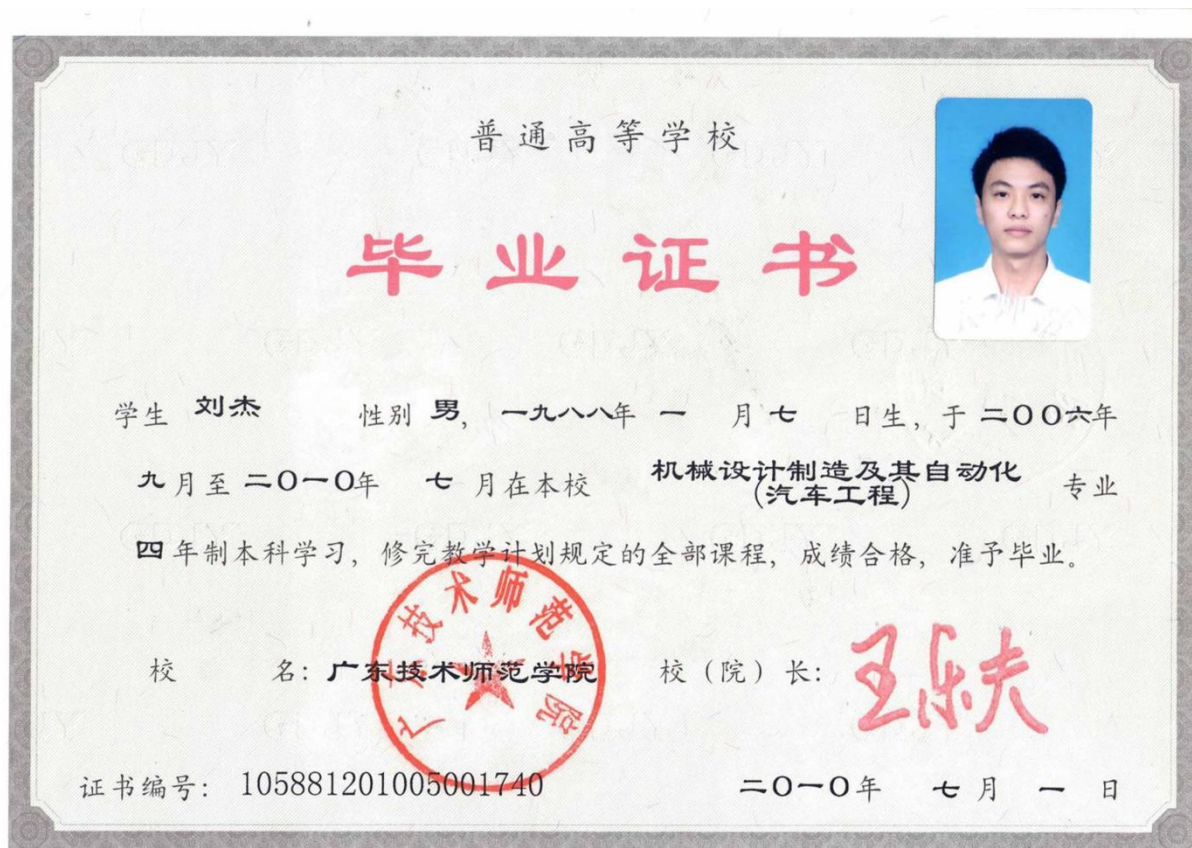 普通高等学校
毕业证书
学生 刘杰 性别 男, 一九八八年 一 月 七 日生, 于 二〇〇六年
九 月至 二〇一〇年 七 月在本校 机械设计制造及其自动化(汽车工程) 专业
四 年制本科学习, 修完教学计划规定的全部课程, 成绩合格, 准予毕业。
广东技术师范学院
校 名: 广东技术师范学院 校 (院) 长: 王乐夫
证书编号: 105881201005001740 二〇一〇年 七 月 一 日